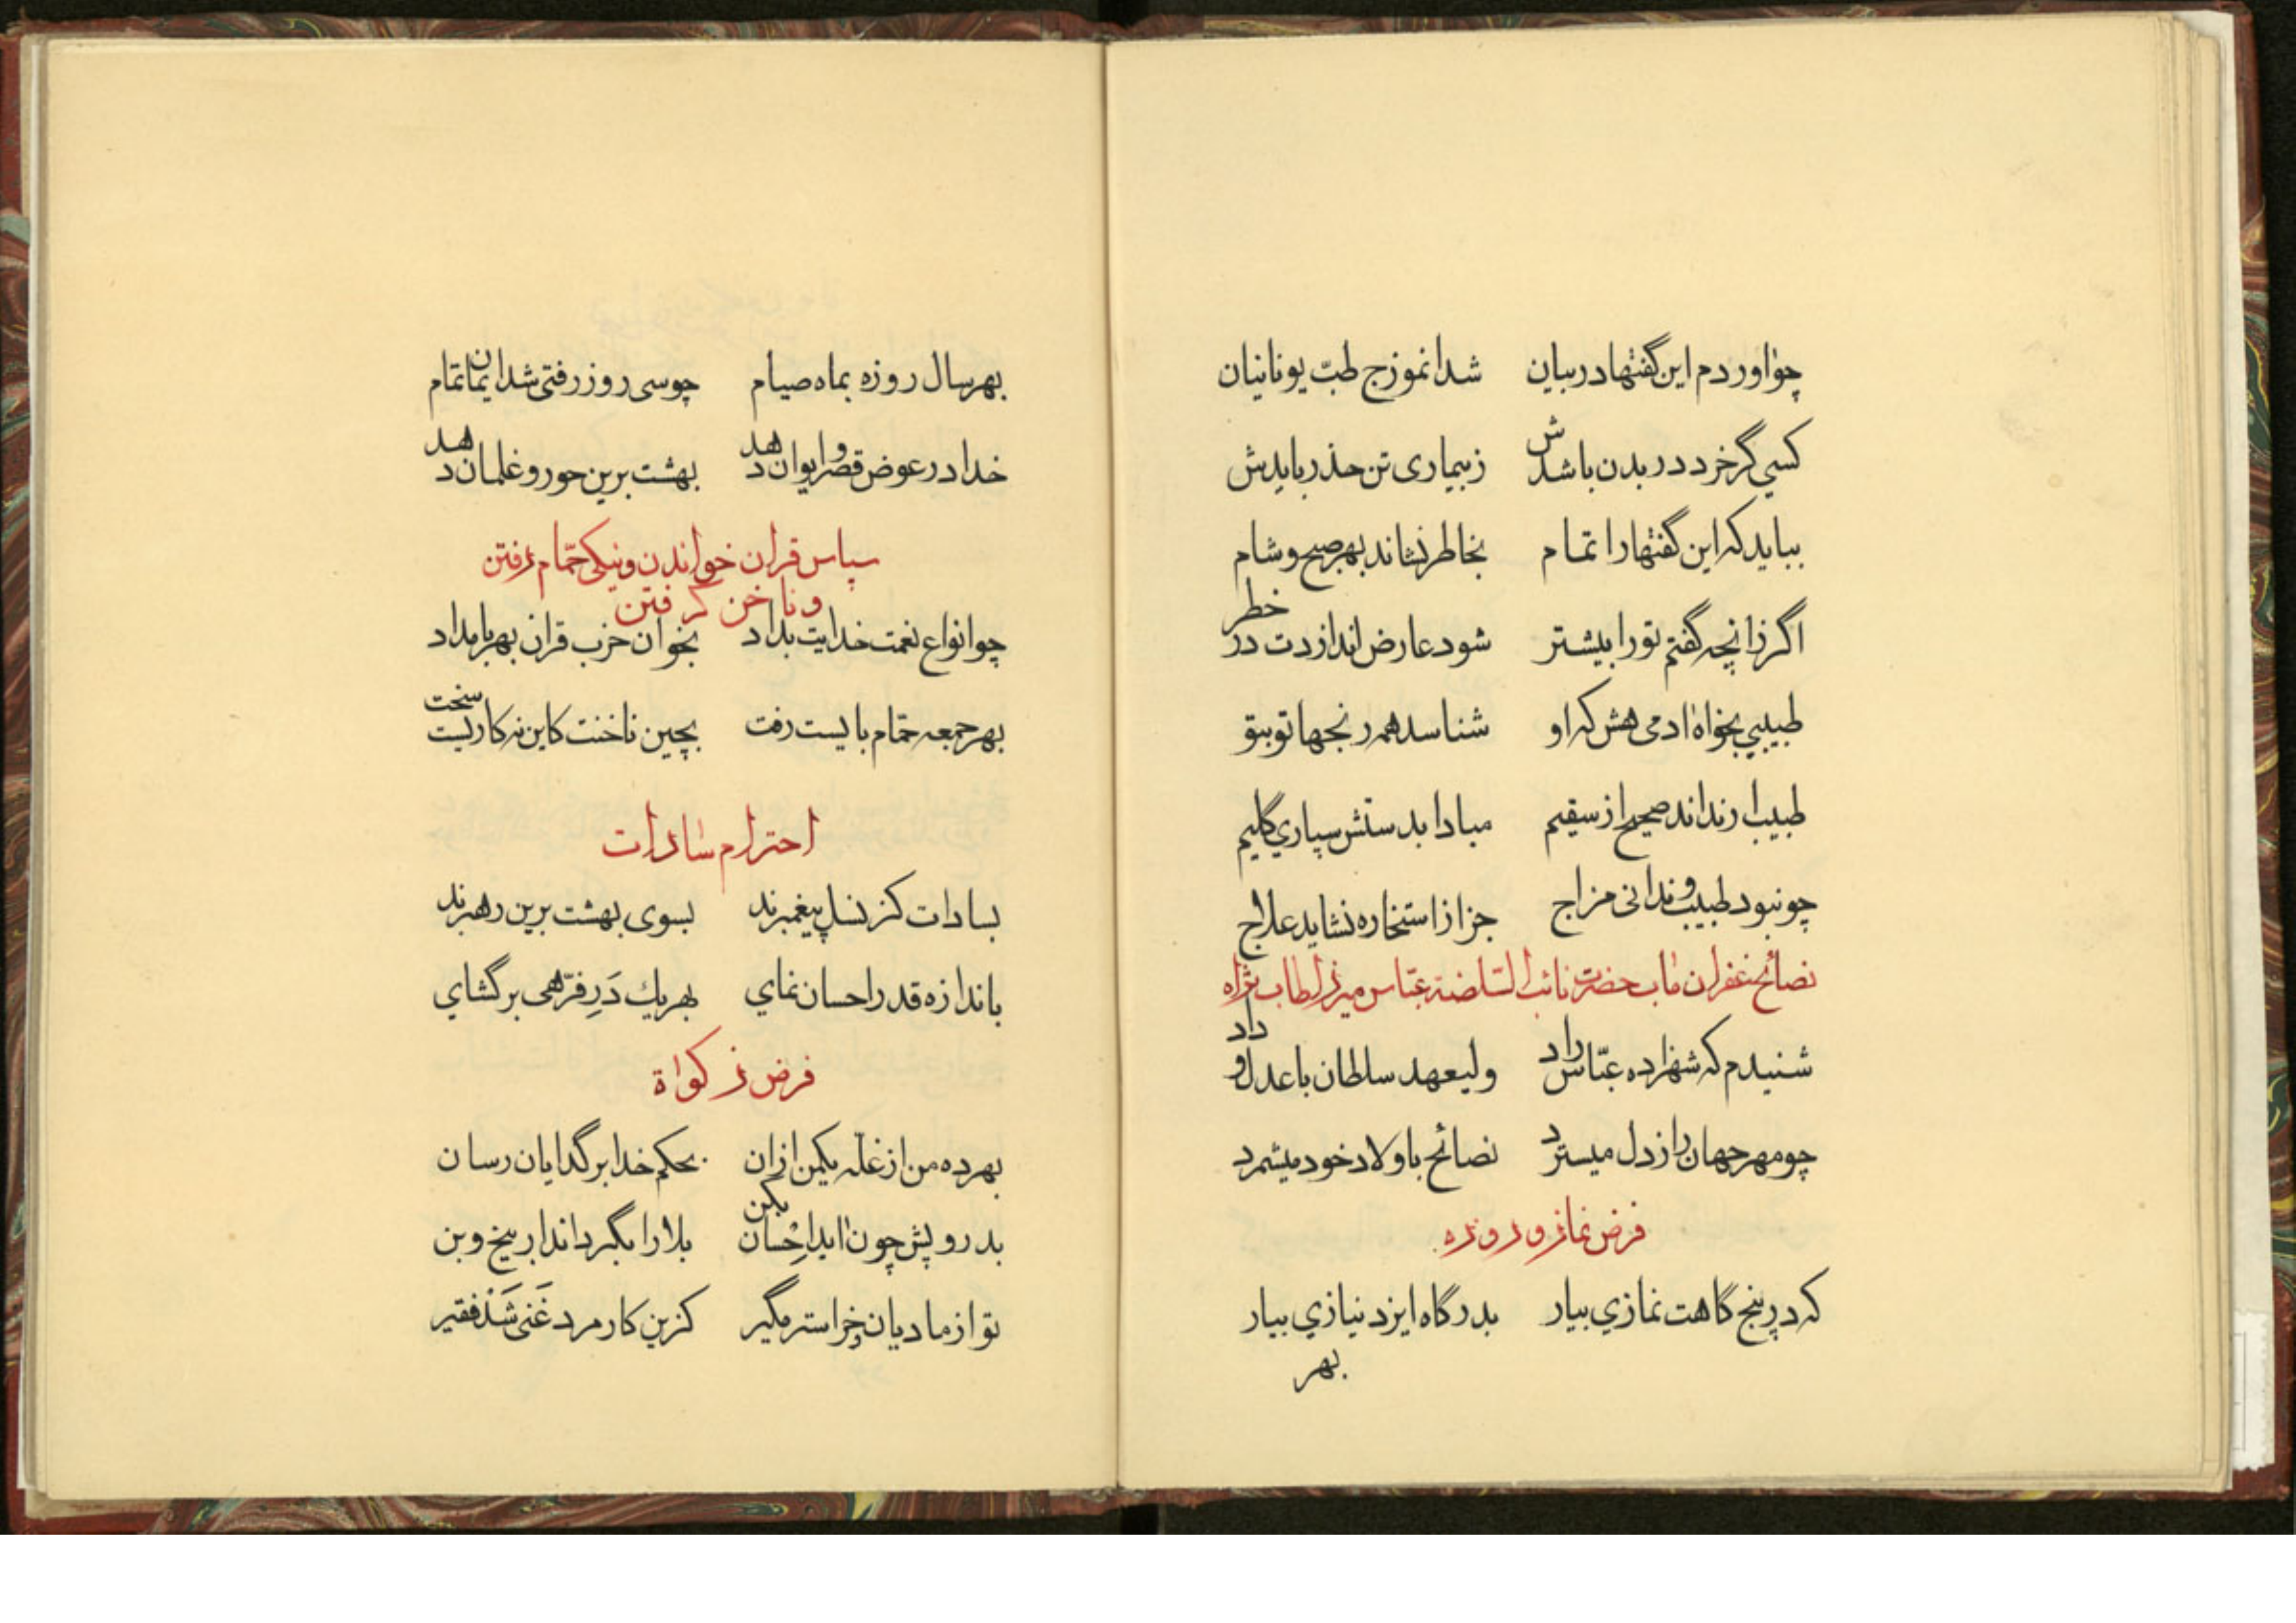 چو اوردم این گفتها در بیان شد انموزج طبّ یونانیان
کسی گر خرد در بدن باشدش ز بیماری تن حذر بایدش
بباید که این گفتها را تمام بخاطر نشاند بهر صبح و شام
اگر زانچه گفتم تو را بیشتر شود عارض اندازدت در خطر
طبیبی بخواه ادمی هش که او شناسد همه رنجها تو بتو
طبیب ار نداند صحیح از سقیم مبادا بدستش سپاری گلیم
چو نبود طبیب و ندانی مزاج جز از استخاره نشاید علاج
نصائح غفران ماب حضرت نائب السّلطنه عبّاس میرزا طاب ثراه
شنیدم که شهزاده عبّاس راد ولیعهد سلطان با عدل و داد
چو مهر جهان را ز دل میسترد نصائح باولاد خود میشمرد
فرض نماز و روزه
که در پنج گاهت نمازی بیار بدرگاه ایزد نیازی بیار
بهر
بهر سال روزه بماه صیام چو سی روز رفتی شد ایمان تمام
خدا در عوض قصر و ایوان دهد بهشت برین حور و غلمان دهد
سپاس قران خواندن و نیکی حمّام رفتن
و ناخن گرفتن
چو انواع نعمت خدایت بداد بخوان حزب قران بهر بامداد
بهر جمعه حمّام بایست رفت بچین ناخنت کاین نه کاریست سخت
احترام سادات
بسادات کز نسل پیغمبرند بسوی بهشت برین رهبرند
باندازه قدر احسان نمای بهر یك دَرِ فرّهی برگشای
فرض زکواة
بهر ده من از غلّه یکمن ازان بحکم خدا بر گدایان رسان
بدرویش چون اید اِحْسان بکن بلا را بگرداند از بیخ و بن
تو از مادیان و خر استر مگیر کزین کار مرد غَنی شَدْ فقیر